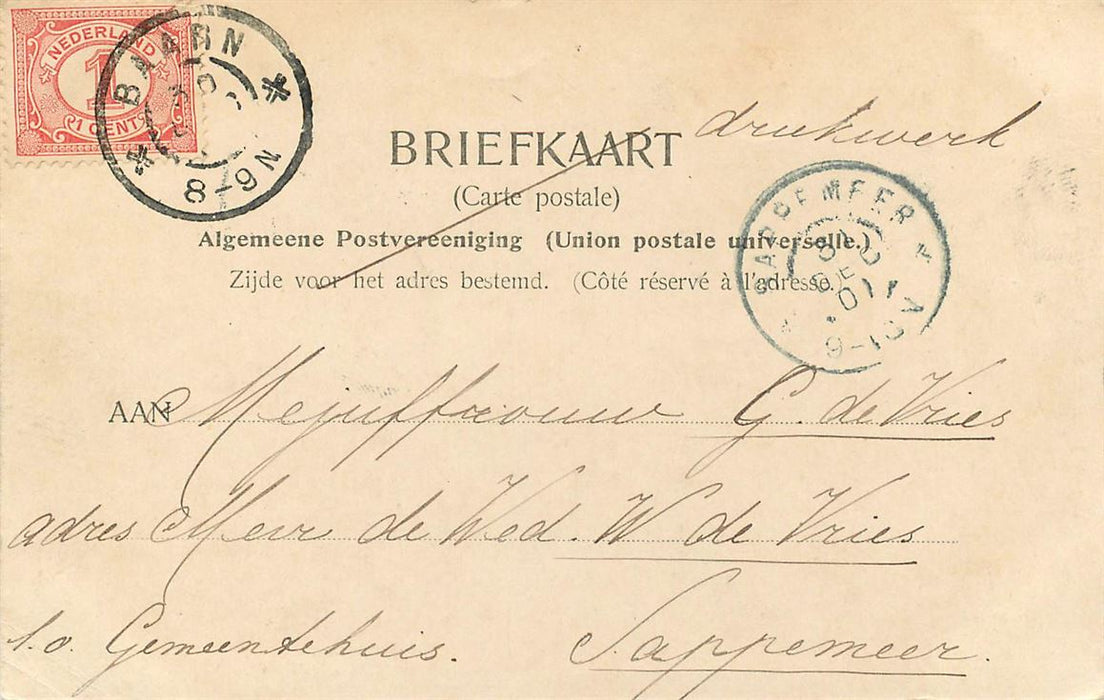 NEDERLAND
1
1 CENT
BAARN
8-9N
drukwerk
BRIEFKAART
(Carte postale)
Algemeene Postvereeniging (Union postale universelle.)
Zijde voor het adres bestemd. (Côté réservé à l'adresse.)
SAPPEMEER
31
DEC
01
9-10V
AAN Mejuffrouw G. de Vries
adres Mevr de Wed. W de Vries
t.o. Gemeentehuis. Sappemeer.